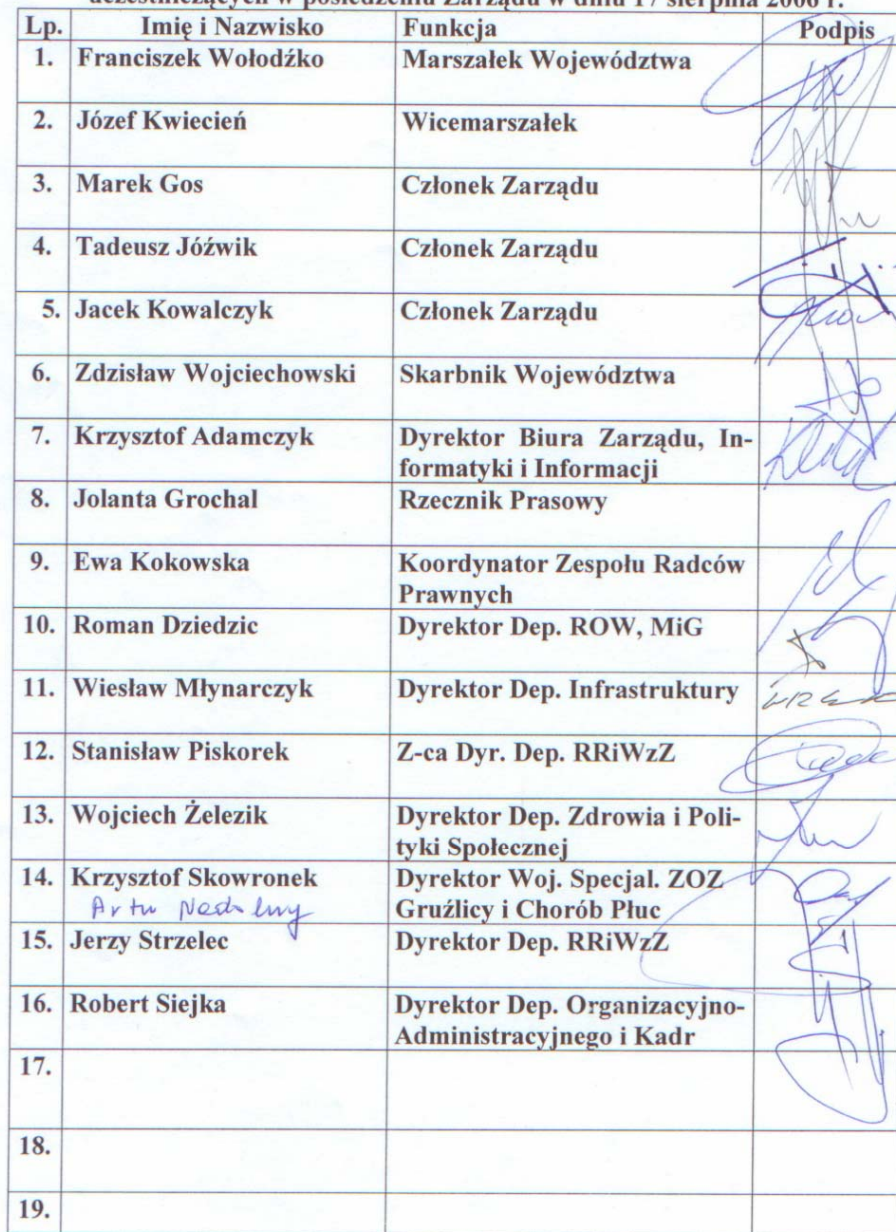 uczestniczących w posiedzeniu Zarządu w dniu 17 sierpnia 2006 r.
Lp. Imię i Nazwisko Funkcja Podpis
1. Franciszek Wołodźko Marszałek Województwa
2. Józef Kwiecień Wicemarszałek
3. Marek Gos Członek Zarządu
4. Tadeusz Jóźwik Członek Zarządu
5. Jacek Kowalczyk Członek Zarządu
6. Zdzisław Wojciechowski Skarbnik Województwa
7. Krzysztof Adamczyk Dyrektor Biura Zarządu, In-
formatyki i Informacji
8. Jolanta Grochal Rzecznik Prasowy
9. Ewa Kokowska Koordynator Zespołu Radców
Prawnych
10. Roman Dziedzic Dyrektor Dep. ROW, MiG
11. Wiesław Młynarczyk Dyrektor Dep. Infrastruktury
12. Stanisław Piskorek Z-ca Dyr. Dep. RRiWzZ
13. Wojciech Żelezik Dyrektor Dep. Zdrowia i Poli-
tyki Społecznej
14. Krzysztof Skowronek Dyrektor Woj. Specjal. ZOZ
Gruźlicy i Chorób Płuc
15. Jerzy Strzelec Dyrektor Dep. RRiWzZ
16. Robert Siejka Dyrektor Dep. Organizacyjno-
Administracyjnego i Kadr
17.
18.
19.